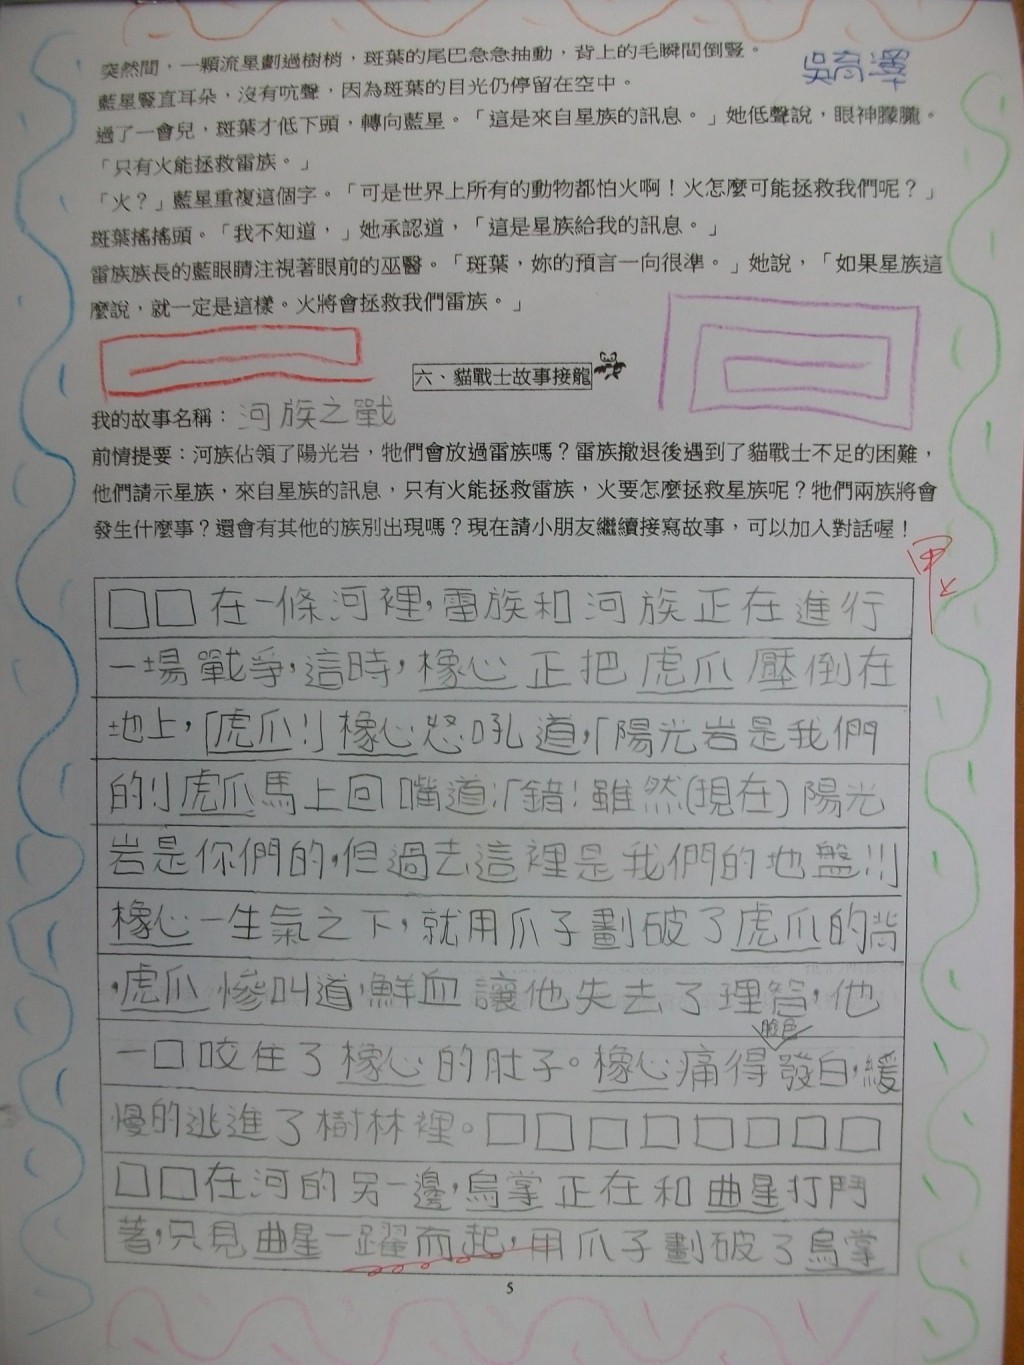 突然間，一顆流星劃過樹梢，斑葉的尾巴急急抽動，背上的毛瞬間倒豎。
吳育澤
藍星豎直耳朵，沒有吭聲，因為斑葉的目光仍停留在空中。
過了一會兒，斑葉才低下頭，轉向藍星。「這是來自星族的訊息。」她低聲說，眼神朦朧。
「只有火能拯救雷族。」
「火？」藍星重複這個字。「可是世界上所有的動物都怕火啊！火怎麼可能拯救我們呢？」
斑葉搖搖頭。「我不知道，」她承認道，「這是星族給我的訊息。」
雷族族長的藍眼睛注視著眼前的巫醫。「斑葉，妳的預言一向很準。」她說，「如果星族這
麼說，就一定是這樣。火將會拯救我們雷族。」
六、貓戰士故事接龍
我的故事名稱：河族之戰
前情提要：河族佔領了陽光岩，牠們會放過雷族嗎？雷族撤退後遇到了貓戰士不足的困難，
他們請示星族，來自星族的訊息，只有火能拯救雷族，火要怎麼拯救星族呢？牠們兩族將會
發生什麼事？還會有其他的族別出現嗎？現在請小朋友繼續接寫故事，可以加入對話喔！
甲上
□□在一條河裡，雷族和河族正在進行
一場戰爭，這時，橡心正把虎爪壓倒在
地上，「虎爪！」橡心怒吼道，「陽光岩是我們
的！」虎爪馬上回嘴道：「錯！雖然(現在)陽光
岩是你們的，但過去這裡是我們的地盤！」
橡心一生氣之下，就用爪子劃破了虎爪的背
，虎爪慘叫道，鮮血讓他失去了理智，他
一口咬住了橡心的肚子。橡心痛得臉色發白，緩
慢的逃進了樹林裡。□□□□□□□□
□□在河的另一邊，烏掌正在和曲星打鬥
著，只見曲星一躍而起，用爪子劃破了烏掌
5